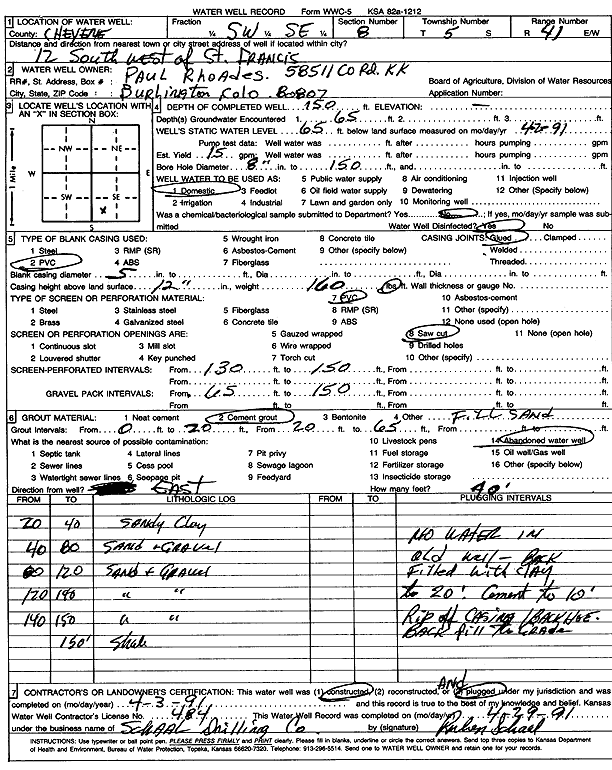 WATER WELL RECORD Form WWC-5 KSA 82a-1212
1 LOCATION OF WATER WELL: Fraction Section Number Township Number Range Number
County: CHEYENE ¼ SW ¼ SE ¼ 8 T 5 S R 41 E/W
Distance and direction from nearest town or city street address of well if located within city?
12 South west of St. Francis
2 WATER WELL OWNER: PAUL Rhoades. 58511 CO Rd. KK
RR#, St. Address, Box # : Board of Agriculture, Division of Water Resources
City, State, ZIP Code : Burlington Colo 80807 Application Number:
3 LOCATE WELL'S LOCATION WITH AN "X" IN SECTION BOX:
N
NW NE
W E
SW SE
X
S
1 Mile
4 DEPTH OF COMPLETED WELL 150 ft. ELEVATION: —
Depth(s) Groundwater Encountered 1. 65 ft. 2. ft. 3. ft.
WELL'S STATIC WATER LEVEL 65 ft. below land surface measured on mo/day/yr 4-2-91
Pump test data: Well water was ft. after hours pumping gpm
Est. Yield 15 gpm Well water was ft. after hours pumping gpm
Bore Hole Diameter 8" in. to 150 ft., and in. to ft.
WELL WATER TO BE USED AS: 5 Public water supply 8 Air conditioning 11 Injection well
1 Domestic 3 Feedlot 6 Oil field water supply 9 Dewatering 12 Other (Specify below)
2 Irrigation 4 Industrial 7 Lawn and garden only 10 Monitoring well
Was a chemical/bacteriological sample submitted to Department? Yes No ; If yes, mo/day/yr sample was submitted
Water Well Disinfected? Yes No
5 TYPE OF BLANK CASING USED: 5 Wrought iron 8 Concrete tile CASING JOINTS: Glued Clamped
1 Steel 3 RMP (SR) 6 Asbestos-Cement 9 Other (specify below) Welded
2 PVC 4 ABS 7 Fiberglass Threaded
Blank casing diameter 5 in. to ft., Dia in. to ft., Dia in. to ft.
Casing height above land surface 12" in., weight 160 lbs./ft. Wall thickness or gauge No.
TYPE OF SCREEN OR PERFORATION MATERIAL: 7 PVC 10 Asbestos-cement
1 Steel 3 Stainless steel 5 Fiberglass 8 RMP (SR) 11 Other (specify)
2 Brass 4 Galvanized steel 6 Concrete tile 9 ABS 12 None used (open hole)
SCREEN OR PERFORATION OPENINGS ARE: 5 Gauzed wrapped 8 Saw cut 11 None (open hole)
1 Continuous slot 3 Mill slot 6 Wire wrapped 9 Drilled holes
2 Louvered shutter 4 Key punched 7 Torch cut 10 Other (specify)
SCREEN-PERFORATED INTERVALS: From 130 ft. to 150 ft., From ft. to ft.
From ft. to ft., From ft. to ft.
GRAVEL PACK INTERVALS: From 65 ft. to 150 ft., From ft. to ft.
From ft. to ft., From ft. to ft.
6 GROUT MATERIAL: 1 Neat cement 2 Cement grout 3 Bentonite 4 Other FILL SAND
Grout Intervals: From 0 ft. to 20 ft., From 20 ft. to 65 ft., From ft. to ft.
What is the nearest source of possible contamination: 10 Livestock pens 14 Abandoned water well
1 Septic tank 4 Lateral lines 7 Pit privy 11 Fuel storage 15 Oil well/Gas well
2 Sewer lines 5 Cess pool 8 Sewage lagoon 12 Fertilizer storage 16 Other (specify below)
3 Watertight sewer lines 6 Seepage pit 9 Feedyard 13 Insecticide storage
Direction from well? EAST How many feet? 40'
FROM TO LITHOLOGIC LOG FROM TO PLUGGING INTERVALS
20 40 Sandy Clay
40 80 Sand & Gravel NO WATER IN
80 120 Sand & Gravel Old well - BACK
120 140 " " Filled with CLAY
140 150 " " to 20'. Cement to 10'
150' Shale Rip off CASING / BACK HOE.
BACK fill To GRADE
7 CONTRACTOR'S OR LANDOWNER'S CERTIFICATION: This water well was (1) constructed, (2) reconstructed, or AND (3) plugged under my jurisdiction and was
completed on (mo/day/year) 4-3-91 and this record is true to the best of my knowledge and belief. Kansas
Water Well Contractor's License No. 484 This Water Well Record was completed on (mo/day/yr) 4-29-91
under the business name of SCHAAL Drilling Co by (signature) Ruben Schaal
INSTRUCTIONS: Use typewriter or ball point pen. PLEASE PRESS FIRMLY and PRINT clearly. Please fill in blanks, underline or circle the correct answers. Send top three copies to Kansas Department
of Health and Environment, Bureau of Water Protection, Topeka, Kansas 66620-7320. Telephone: 913-296-5514. Send one to WATER WELL OWNER and retain one for your records.